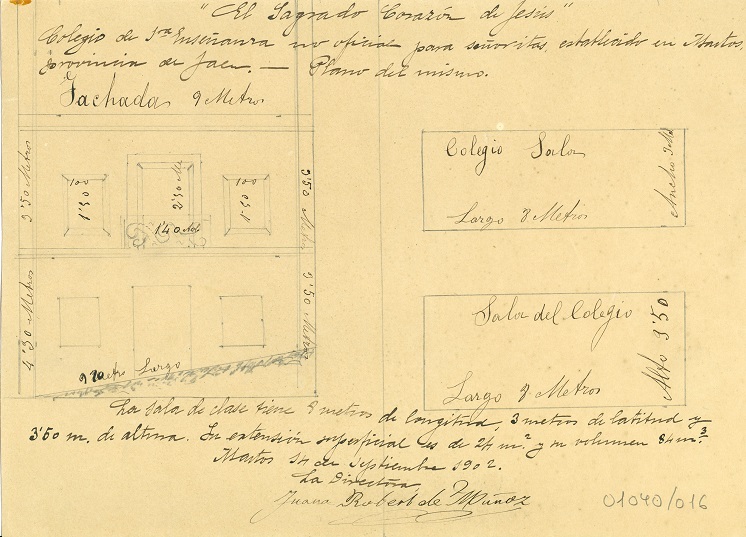 "El Sagrado Corazón de Jesús"
Colegio de 1ra Enseñanza no oficial para señoritas, establecido en Martos,
provincia de Jaen. — Plano del mismo.
Fachada 9 Metros
3'50 Metros
100
1'50
2'50 Me
1'40 Ad
100
1'50
3'50 Metros
4'30 Metros
3'50 Metros
9 Metro Largo
Colegio Sala
Largo 8 Metros
Ancho 3 M
Sala del Colegio
Largo 8 Metros
Alto 3'50
La sala de clase tiene 8 metros de longitud, 3 metros de latitud y
3'50 m. de altura. Su extensión superficial es de 24 m.² y su volumen 84 m.³
Martos 14 de Septiembre 1902.
La Directora,
Juana Robert de Muñoz
01040/016